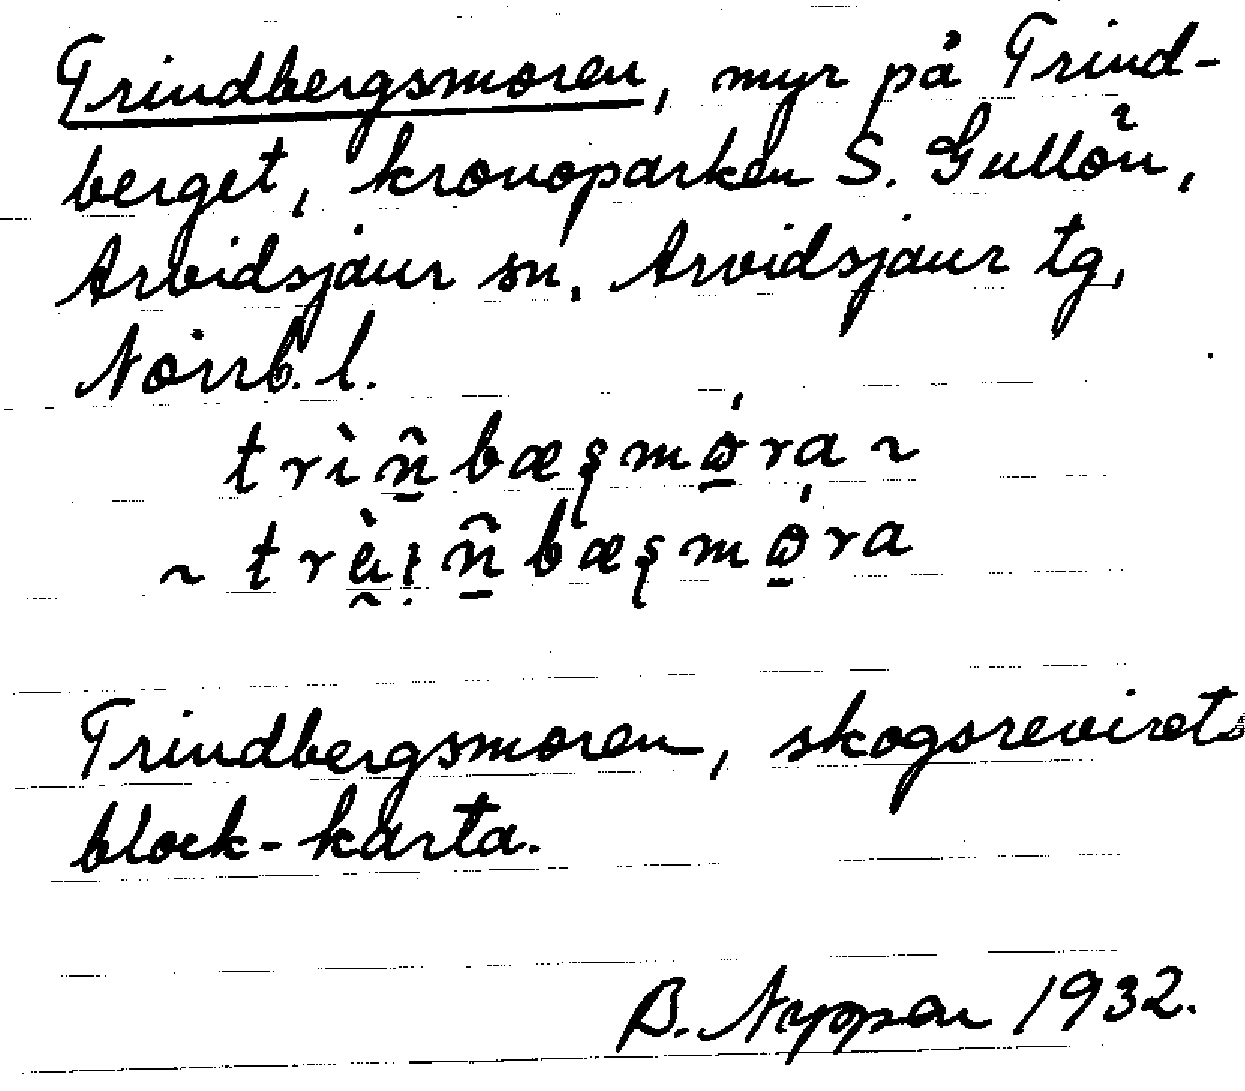 Trindbergsmoren, myr på Trind-
berget, kronoparken S. Gullön,
Arvidsjaur sn. Arvidsjaur tg,
Norrb. l.
~
~
Trindbergsmoren, skogsrevirets
block-karta.
B. Nyppen 1932.